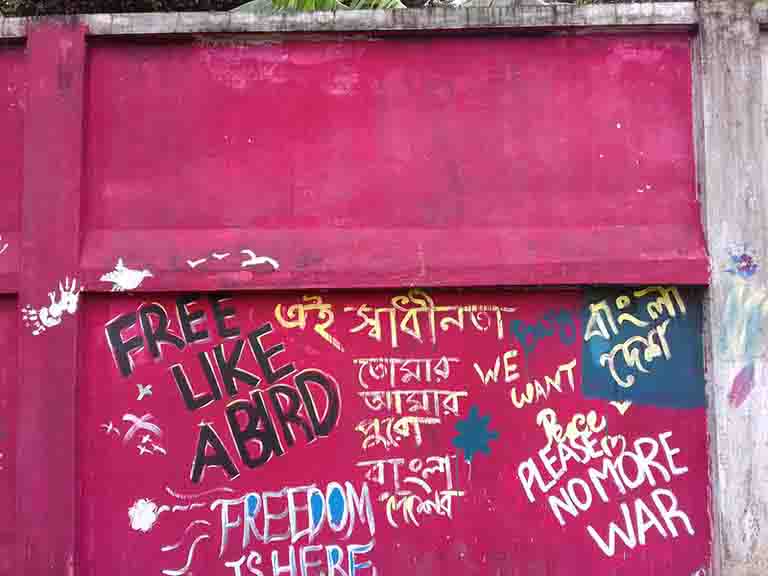 FREE
LIKE
A BIRD
এই স্বাধীনতা
তোমার
আমার
পুরো
বাংলা
দেশের
FREEDOM
IS HERE
বাংলা
দেশ
WE
WANT
Peace
PLEASE
NO MORE
WAR